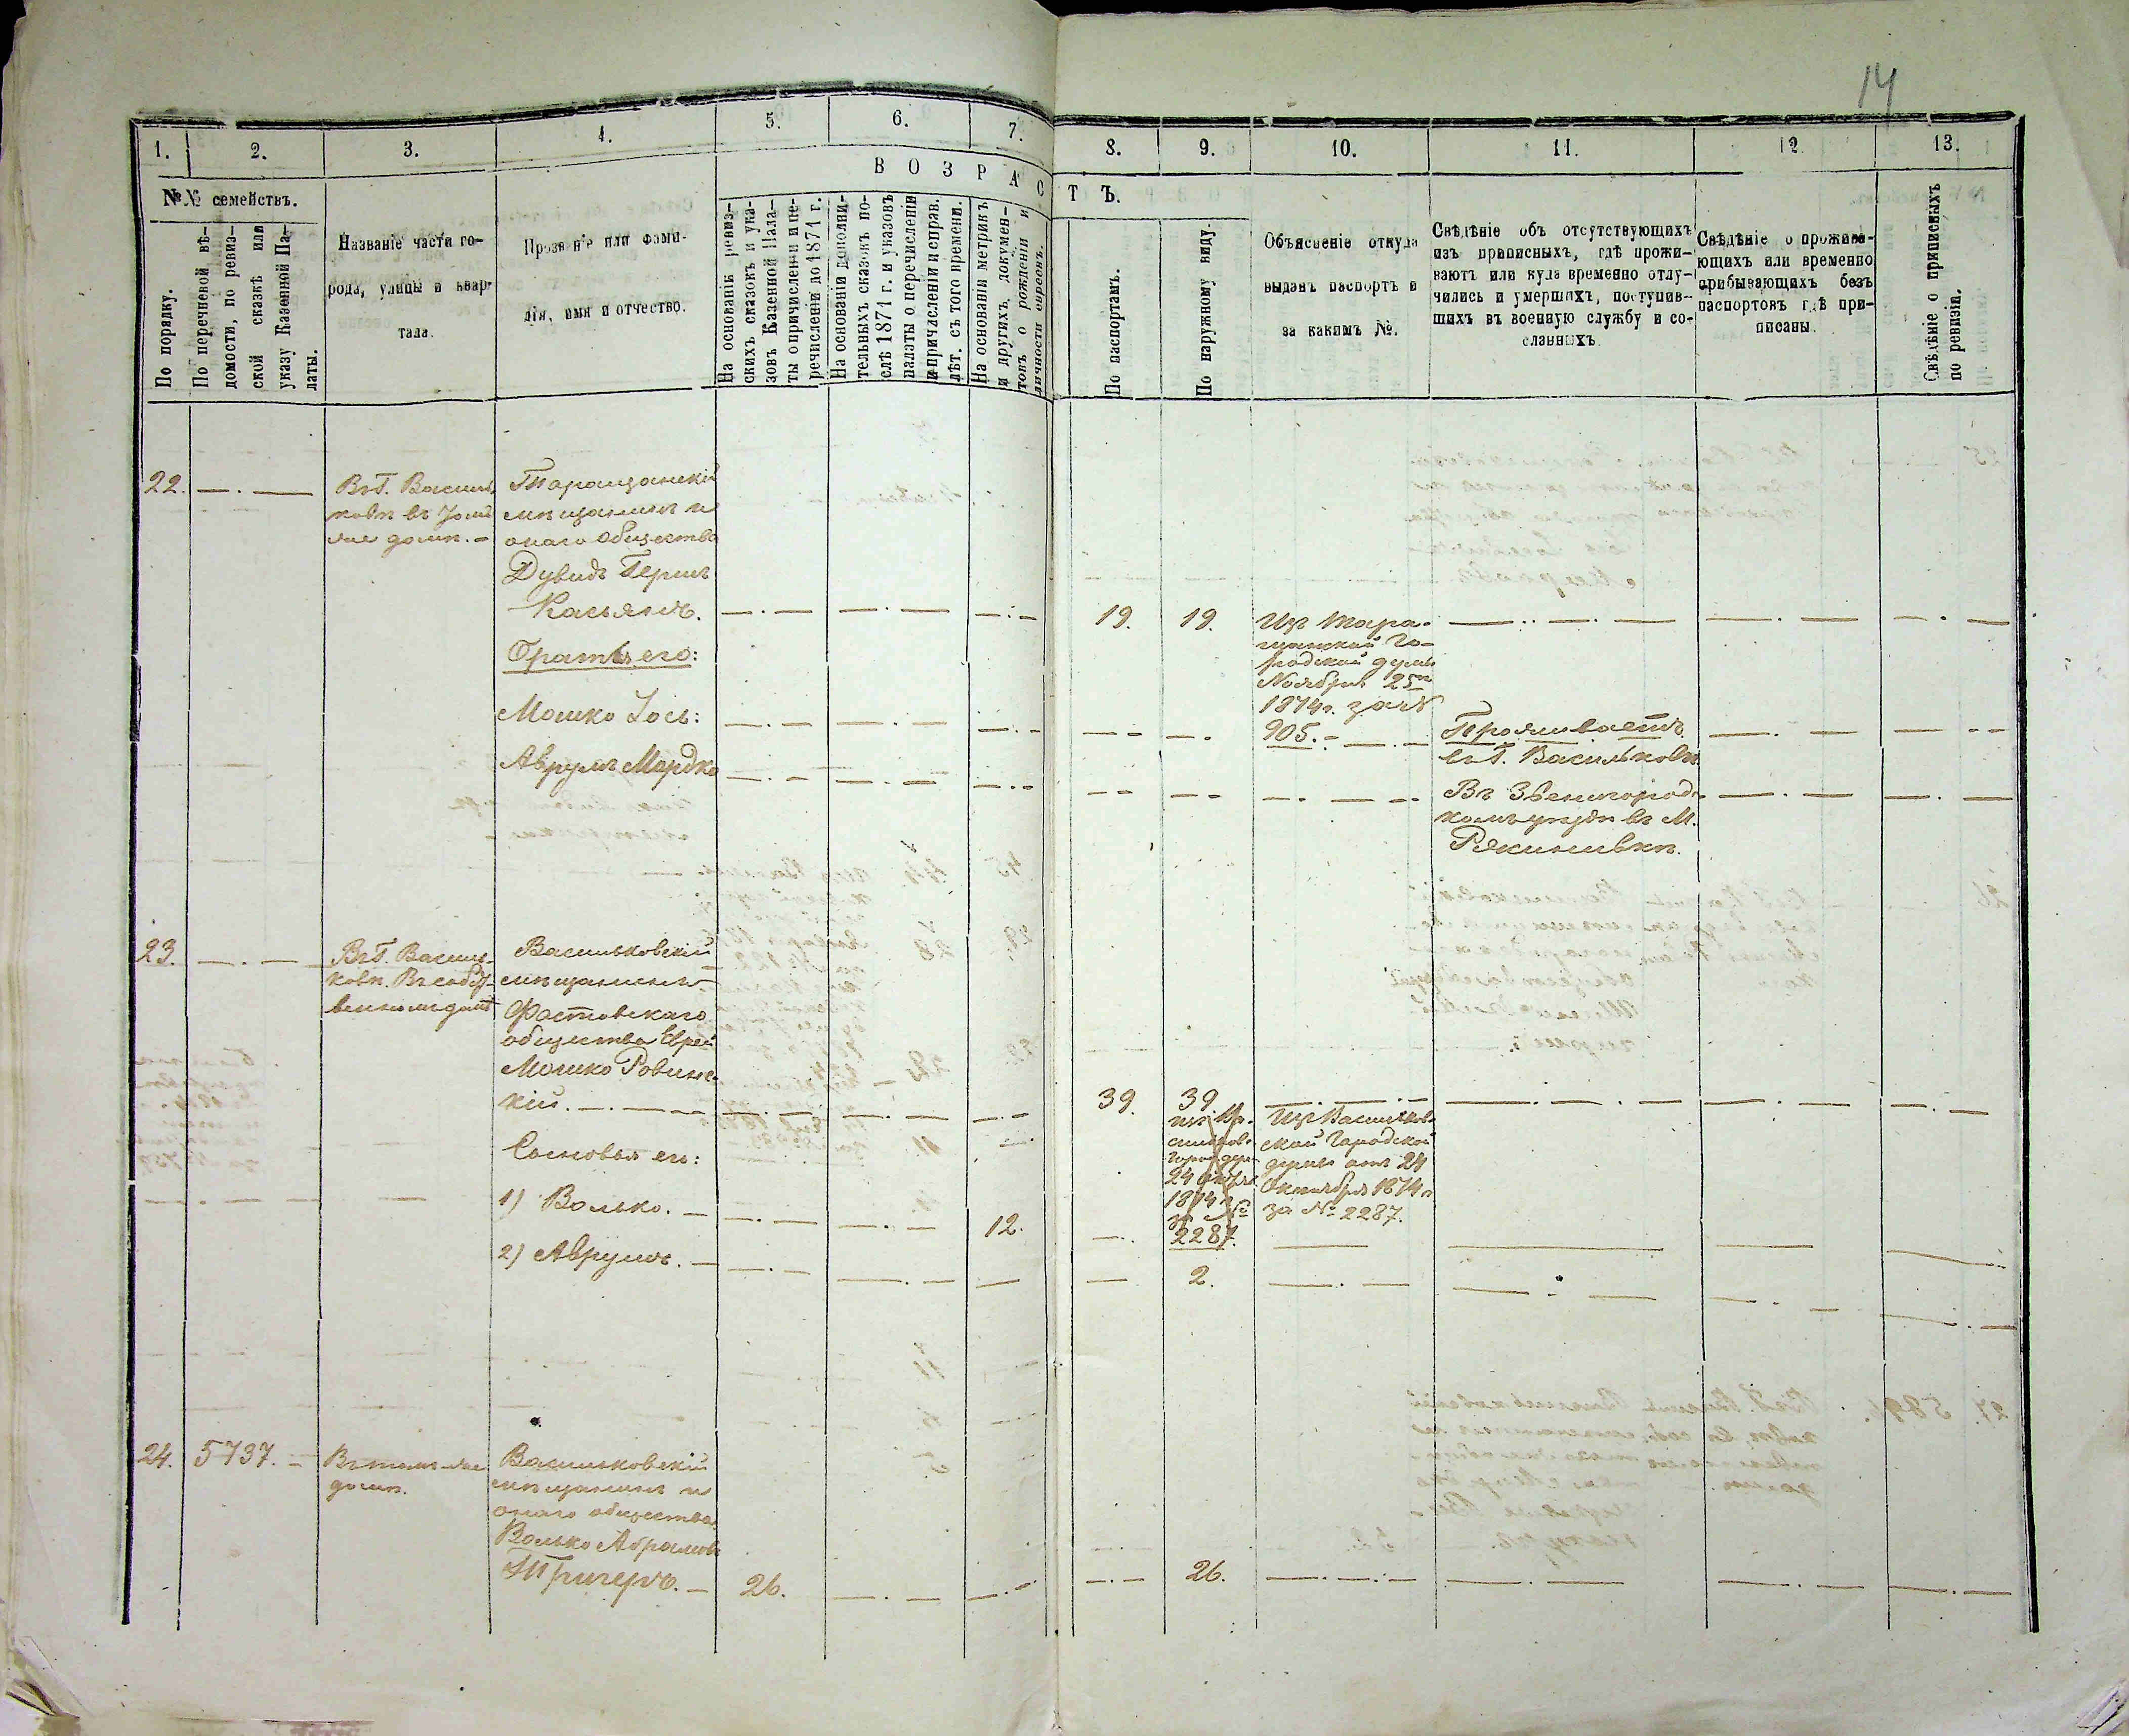 14
1.
2.
3.
4.
5.
6.
7.
8.
9.
10.
11.
12
13.
ВОЗРАСТЪ.
№№ семействъ.
По порядку.
По перечневой вѣ-
домости, по ревиз-
ской сказкѣ или
указу Казенной Па-
латы.
Названіе части го-
рода, улицы и квар-
тала.
Прозваніе или фами-
лія, имя и отчество.
На основаніи ревиз-
скихъ сказокъ и ука-
зовъ Казенной Пала-
ты о причисленіи и пе-
речисленіи до 1871 г.
На основаніи дополни-
тельныхъ сказокъ по-
слѣ 1871 г. и указовъ
палаты о перечислени
и причислени и справ.
лѣт. съ того времени.
На основаніи метрикъ
и другихъ докумен-
товъ о рожденіи и
личности евреевъ.
По паспортамъ.
По наружному виду.
Объясненіе откуда
выданъ паспортъ и
за какимъ №.
Свѣдѣніе объ отсутствующихъ
изъ приписныхъ, гдѣ прожи-
ваютъ или куда временно отлу-
чились и умершихъ, поступив-
шихъ въ военную службу и со-
сланныхъ.
Свѣдѣніе о прожива-
ющихъ или временно
прибывающихъ безъ
паспортовъ гдѣ при-
писаны.
Свѣдѣніе о приписныхъ
по ревизіи.
22.
Въ Г. Василь
ковѣ въ томъ
же домѣ.
Таращанскій
мѣщанинъ и
онаго общества
Дувидъ Герш
Касьянъ.
19.
19.
Изъ Тара-
щанской Го-
родской думы
Ноября 25го
1874г. за №
905.
Братья его:
Мошко Іось:
Проживаетъ
въ Г. Васильковѣ
Аврумъ Мордко
Въ Звенигород-
комъ уѣздѣ въ М.
23.
Въ Г. Василь-
ковѣ. Въ собст-
венномъ домѣ
Васильковскій
мѣщанинъ
Фастовскаго
общества Еврей
Мошко Ровинс-
кій.
39.
39.
2287.
Изъ Васильков-
ской Городской
думы отъ 24
Октября 1874г
за № 2287.
Сыновья его:
1) Волько.
12.
2) Аврумъ.
2.
24.
5737.
Въ томъ же
домѣ.
Васильковскій
мѣщанинъ и
онаго общества
Волько Абрамовъ
26.
26.